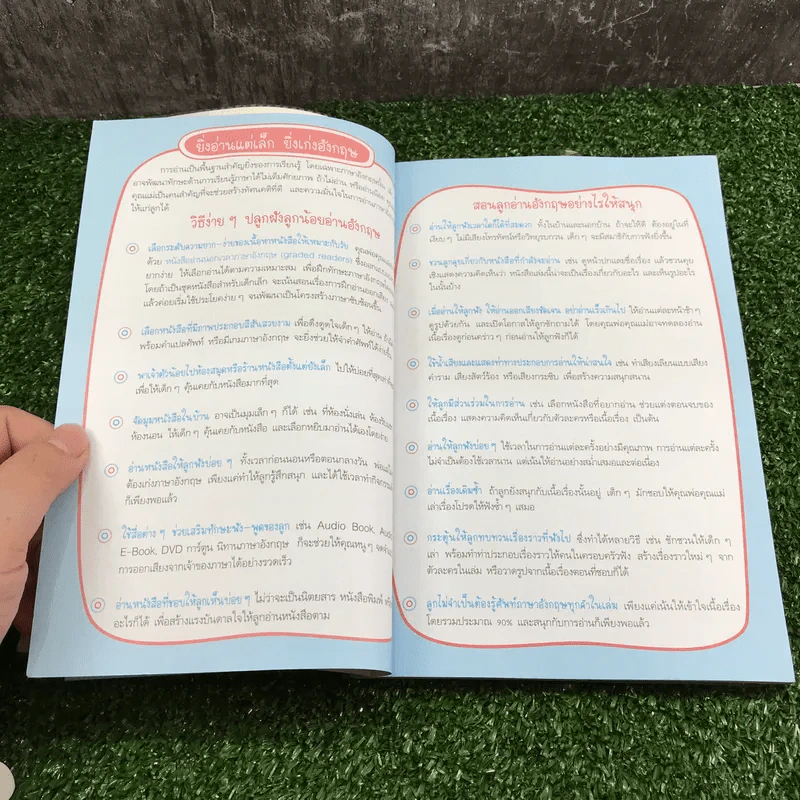 ยิ่งอ่านแต่เล็ก ยิ่งเก่งอังกฤษ
การอ่านเป็นพื้นฐานสำคัญยิ่งของการเรียนรู้ โดยเฉพาะภาษาอังกฤษนั้น
อาจพัฒนาทักษะด้านการเรียนรู้ภาษาได้ไม่เต็มศักยภาพ ถ้าไม่อ่าน หรืออ่านน้อย
คุณแม่เป็นคนสำคัญที่จะช่วยสร้างทัศนคติที่ดี และความมั่นใจในการอ่านภาษาอังกฤษ
ให้แก่ลูกได้
วิธีง่าย ๆ ปลูกฝังลูกน้อยอ่านอังกฤษ
เลือกระดับความยาก-ง่ายของเนื้อหาหนังสือให้เหมาะกับวัย คุณพ่อคุณแม่
ด้วย หนังสืออ่านนอกเวลาภาษาอังกฤษ (graded readers) ซึ่งออกแบบ
ยากง่าย ให้เลือกอ่านได้ตามความเหมาะสม เพื่อฝึกทักษะภาษาอังกฤษ
โดยถ้าเป็นชุดหนังสือสำหรับเด็กเล็ก จะเน้นสอนเรื่องการฝึกอ่านออกเสียง
แล้วค่อยเริ่มใช้ประโยคง่าย ๆ จนพัฒนาเป็นโครงสร้างภาษาซับซ้อนขึ้น
เลือกหนังสือที่มีภาพประกอบสีสันสวยงาม เพื่อดึงดูดใจเด็ก ๆ ให้อ่าน
พร้อมคำแปลศัพท์ หรือมีเกมภาษาอังกฤษ จะยิ่งช่วยให้จำคำศัพท์ได้ง่ายขึ้น
พาเจ้าตัวน้อยไปห้องสมุดหรือร้านหนังสือตั้งแต่ยังเล็ก ไปให้บ่อยที่สุด
เพื่อให้เด็ก ๆ คุ้นเคยกับหนังสือมากที่สุด
จัดมุมหนังสือในบ้าน อาจเป็นมุมเล็ก ๆ ก็ได้ เช่น ที่ห้องนั่งเล่น
ห้องนอน ให้เด็ก ๆ คุ้นเคยกับหนังสือ และเลือกหยิบมาอ่านได้เองโดยง่าย
อ่านหนังสือให้ลูกฟังบ่อย ๆ ทั้งเวลาก่อนนอนหรือตอนกลางวัน
ต้องเก่งภาษาอังกฤษ เพียงแค่ทำให้ลูกรู้สึกสนุก และได้ใช้เวลาทำกิจกรรม
ก็เพียงพอแล้ว
ใช้สื่อต่าง ๆ ช่วยเสริมทักษะฟัง-พูดของลูก เช่น Audio Book,
E-Book, DVD การ์ตูน นิทานภาษาอังกฤษ ก็จะช่วยให้คุณหนู ๆ
การออกเสียงจากเจ้าของภาษาได้อย่างรวดเร็ว
อ่านหนังสือที่ชอบให้ลูกเห็นบ่อย ๆ ไม่ว่าจะเป็นนิตยสาร หนังสือพิมพ์
อะไรก็ได้ เพื่อสร้างแรงบันดาลใจให้ลูกอ่านหนังสือตาม
สอนลูกอ่านอังกฤษอย่างไรให้สนุก
อ่านให้ลูกฟังเวลาใดก็ได้ที่สะดวก ทั้งในบ้านและนอกบ้าน ถ้าจะให้ดี ต้องอยู่ในที่
เงียบ ๆ ไม่มีเสียงโทรทัศน์หรือวิทยุรบกวน เด็ก ๆ จะมีสมาธิกับการฟังยิ่งขึ้น
ชวนลูกคุยเกี่ยวกับหนังสือที่กำลังจะอ่าน เช่น ดูหน้าปกและชื่อเรื่อง แล้วชวนคุย
เชิงแสดงความคิดเห็นว่า หนังสือเล่มนี้น่าจะเป็นเรื่องเกี่ยวกับอะไร และเห็นรูปอะไร
ในนั้นบ้าง
เมื่ออ่านให้ลูกฟัง ให้อ่านออกเสียงชัดเจน อย่าอ่านเร็วเกินไป ให้อ่านแต่ละหน้าช้า ๆ
ดูรูปด้วยกัน และเปิดโอกาสให้ลูกซักถามได้ โดยคุณพ่อคุณแม่อาจทดลองอ่าน
เนื้อเรื่องดูก่อนคร่าว ๆ ก่อนอ่านให้ลูกฟังก็ได้
ใช้น้ำเสียงและแสดงท่าทางประกอบการอ่านให้น่าสนใจ เช่น ทำเสียงเลียนแบบเสียง
คำราม เสียงสัตว์ร้อง หรือเสียงกระซิบ เพื่อสร้างความสนุกสนาน
ให้ลูกมีส่วนร่วมในการอ่าน เช่น เลือกหนังสือที่อยากอ่าน ช่วยแต่งตอนจบของ
เนื้อเรื่อง แสดงความคิดเห็นเกี่ยวกับตัวละครหรือเนื้อเรื่อง เป็นต้น
อ่านให้ลูกฟังบ่อย ๆ ใช้เวลาในการอ่านแต่ละครั้งอย่างมีคุณภาพ การอ่านแต่ละครั้ง
ไม่จำเป็นต้องใช้เวลานาน แต่เน้นให้อ่านอย่างสม่ำเสมอและต่อเนื่อง
อ่านเรื่องเดิมซ้ำ ถ้าลูกยังสนุกกับเนื้อเรื่องนั้นอยู่ เด็ก ๆ มักชอบให้คุณพ่อคุณแม่
เล่าเรื่องโปรดให้ฟังซ้ำ ๆ เสมอ
กระตุ้นให้ลูกทบทวนเรื่องราวที่ฟังไป ซึ่งทำได้หลายวิธี เช่น ชักชวนให้เด็ก ๆ
เล่า พร้อมทำท่าประกอบเรื่องราวให้คนในครอบครัวฟัง สร้างเรื่องราวใหม่ ๆ จาก
ตัวละครในเล่ม หรือวาดรูปจากเนื้อเรื่องตอนที่ชอบก็ได้
ลูกไม่จำเป็นต้องรู้ศัพท์ภาษาอังกฤษทุกคำในเล่ม เพียงแค่เน้นให้เข้าใจเนื้อเรื่อง
โดยรวมประมาณ 90% และสนุกกับการอ่านก็เพียงพอแล้ว